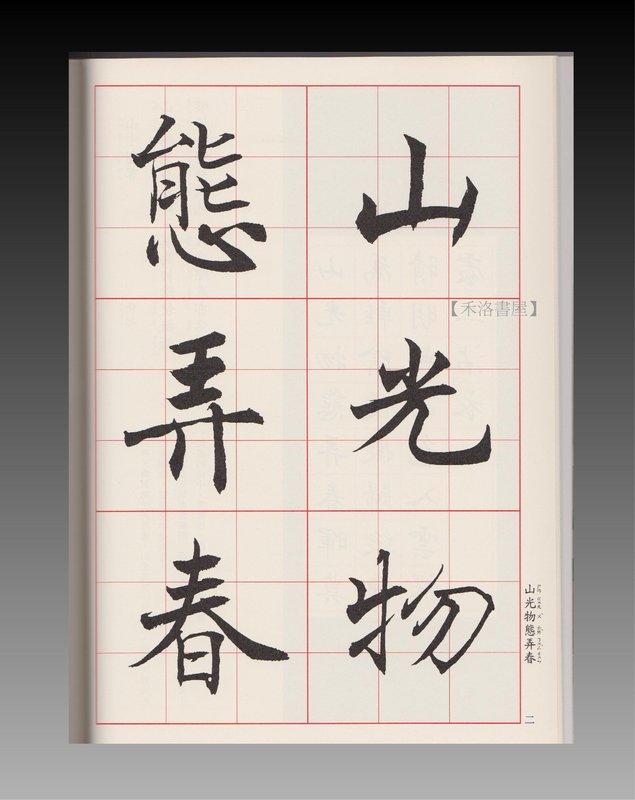 山光物
態弄春
【禾洛書屋】
山光物態弄春
二